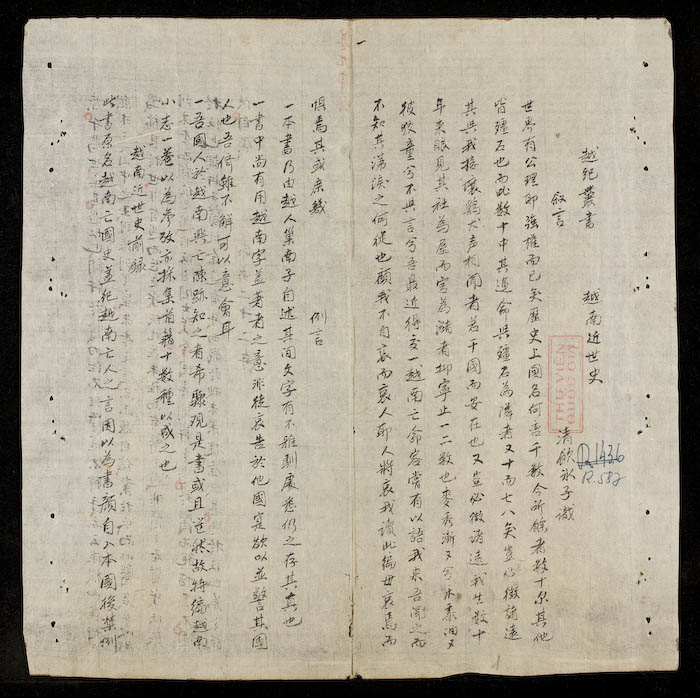 越叢書 越南近世史 清飲氷子識
叙言
世界有公理耶強權而已矣歷史上國名何啻千數今所餘者數十尒其他
皆殭石也而此數十中其運命與殭石為隣者又十而七八矣豈必徵諸遠
其與我接壤鷄犬声相聞者若干國而安在也又豈必徵諸遠我生數十
年来眼見其社為屋而宮為瀦者抑寧止一二數也麥秀漸〻兮禾黍油〻
彼狡童兮不與言兮吾最近得交一越南亡命客嘗有以語我来吾聞之而
不知其涕淚之何從也顧我不自哀而哀人耶人將哀我讀此編毋哀焉而
惧焉其或庶幾 例言
一本書乃由越人巢南子自述其間文字有不雅馴處悉仍之存其真也
一書中尚有用越南字並著者之意非徒哀告於他國寔欲以並警其國
人也吾儕雖不解可以意會耳
一吾國人於越南興亡陳跡知之者希驟現是書或且茫然故特編越南
小志一卷以為參攷亦採集首籍十數種以成之也
越南近世史前錄
此書原名越南亡國史並紀越南亡人之言因以為書顏自入本國後禁例
R.582